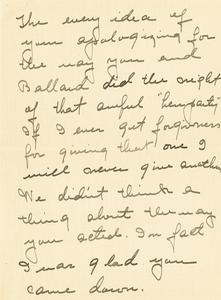 The very idea of
your apologizing for
the way you and
Ballard did the night
of that awful "hen party"
If I ever get forgiveness
for giving that one I
will never give another.
We didn't think a
thing about the way
you acted. In fact
I was glad you
came down.